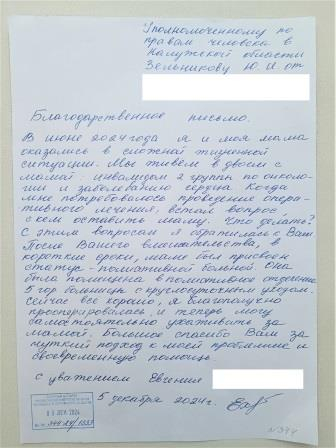 Уполномоченному по
правам человека в
Калужской области
Зельникову Ю.И от
Благодарственное письмо.
В июне 2024 года я и моя мама
оказались в сложной жизненной
ситуации. Мы живём в двоем с
мамой: инвалидом 2 группы по онколо-
гии и заболеванию сердца. Когда
мне потребовалось проведение опера-
тивного лечения, встал вопрос
с кем оставить маму. Что делать?
С этим вопросом я обратилась к Вам
После Вашего вмешательства, в
короткие сроки, маме был присвоен
статус - полиативной больной. Она
была помещена в полиативное отделение
5 гор больницы с круглосуточным уходом.
Сейчас все хорошо, я благополучно
прооперировалась, и теперь могу
самостоятельно ухаживать за
мамой. Большое спасибо Вам за
чуткий подход к моей проблеме и
своевременную помощь.
С уважением Евгения
5 декабря 2024г.
2024
№ 394